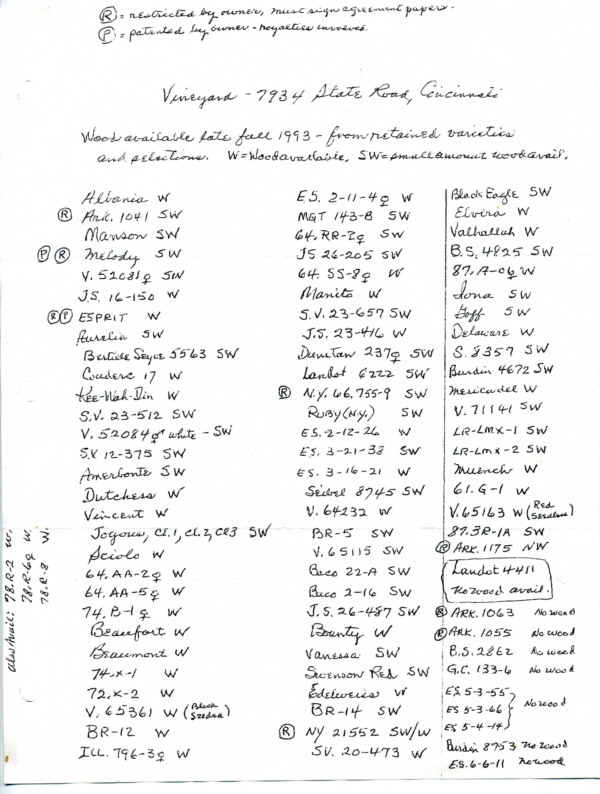 Ⓡ = restricted by owner, must sign agreement papers.
Ⓟ = patented by owner - royalties involved.
Vineyard - 7934 State Road, Cincinnati
Wood available late fall 1993 - from retained varieties
and selections. W = Wood available, SW = small amount wood avail.
Albania W
Ⓡ Ark. 1041 SW
Manson SW
Ⓟ Ⓡ Melody SW
V. 52081♀ SW
J.S. 16-150 W
Ⓡ Ⓟ ESPRIT W
Aurelia SW
Bertille Seyve 5563 SW
Couderc 17 W
Kee-Wah-Din W
S.V. 23-512 SW
V. 52084♂ white - SW
S.V 12-375 SW
Amerbonte SW
Dutchess W
Vincent W
Joyous, Cl.1, cl.2, Cl3 SW
Sciolo W
64.AA-2♀ W
64.AA-5♀ W
74.B-1♀ W
Beaufort W
Beaumont W
74.X-1 W
72.X-2 W
V. 65361 W (Black Szedna)
BR-12 W
ILL. 796-3♀ W
E.S. 2-11-4♀ W
MGT 143-B SW
64.RR-2♀ SW
JS 26-205 SW
64.SS-8♀ W
Manito W
S.V. 23-657 SW
J.S. 23-416 W
Dunstan 237♀ SW
Landot 6222 SW
Ⓡ N.Y. 66.755-9 SW
RUBY (N.Y.) SW
E.S. 2-12-26 W
E.S. 3-21-38 SW
E.S. 3-16-21 W
Seibel 8745 SW
V. 64232 W
BR-5 SW
V. 65115 SW
Baco 22-A SW
Baco 2-16 SW
J.S. 26-487 SW
Bounty W
Vanessa SW
Swenson Red SW
Edelweiss W
BR-14 SW
Ⓡ NY 21552 SW/W
SV. 20-473 W
Black Eagle SW
Elvira W
Valhallah W
B.S. 4825 SW
87.A-06♀ W
Iona SW
Goff SW
Delaware W
S. 8357 SW
Burdin 4672 SW
Mericadel W
V. 71141 SW
LR-LMX-1 SW
LR-LMX-2 SW
Muench W
61.G-1 W
V. 65163 W (Red Szedna)
87.3R-1A SW
Ⓡ ARK. 1175 NW
Landot 4411
no wood avail.
Ⓡ ARK. 1063 No wood
Ⓡ ARK. 1055 No wood
B.S. 2862 No wood
G.C. 133-6 No wood
ES 5-3-55
ES 5-3-66 No wood
ES 5-4-14
Burdin 8753 No wood
E.S. 6-6-11 no wood
Also Avail: 78.R-2 W,
78.R-6♀ W,
78.R-8 W.